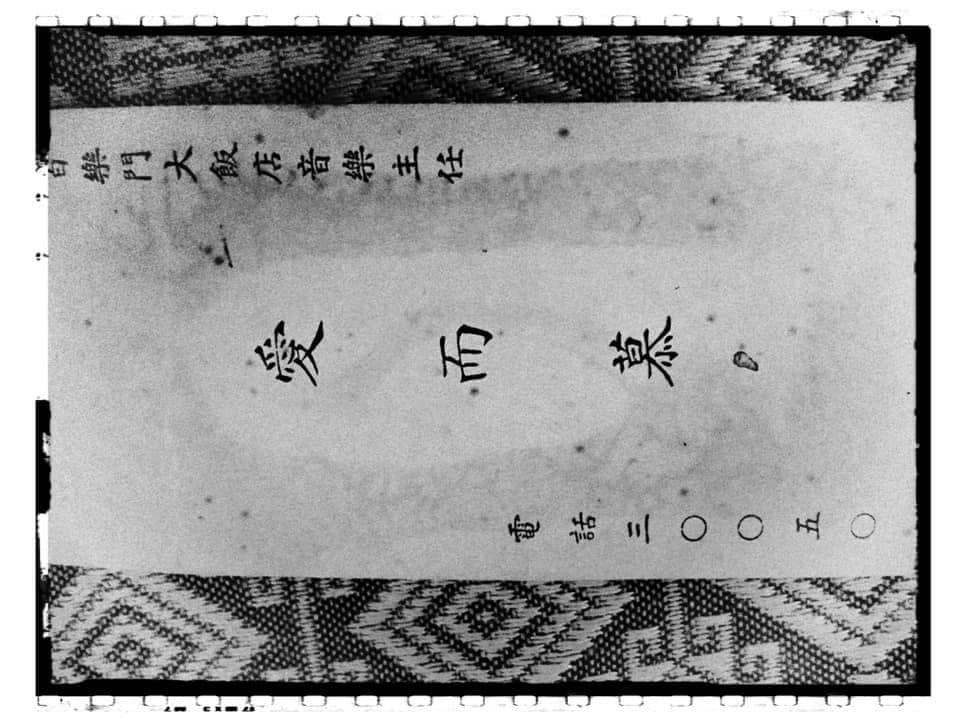 百樂門大飯店音樂主任
愛而慕
電話三〇〇五〇